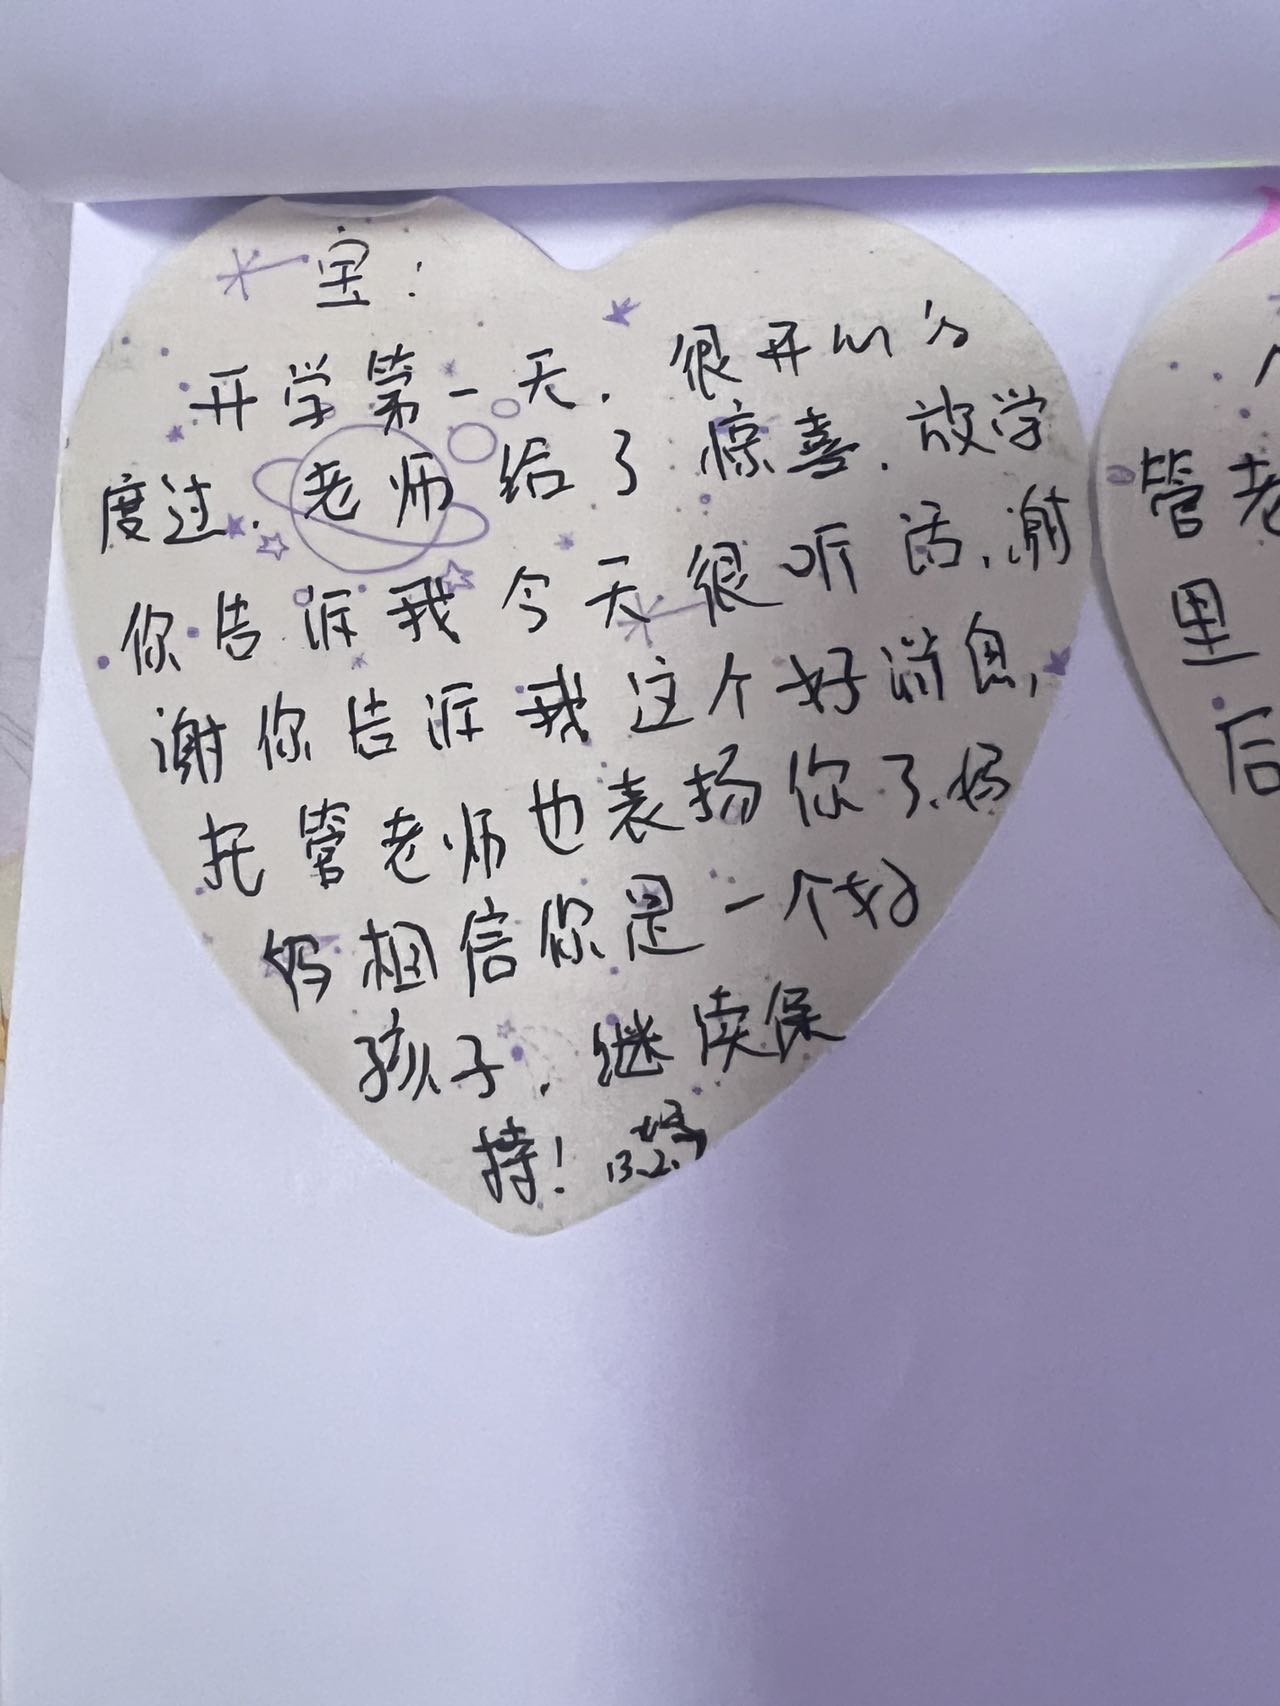 宝：
开学第一天，很开心的
度过，老师给了惊喜，放学
你告诉我今天很听话，谢
谢你告诉我这个好消息，
托管老师也表扬你了，妈
妈相信你是一个好
孩子，继续保
持！
管老
里
后